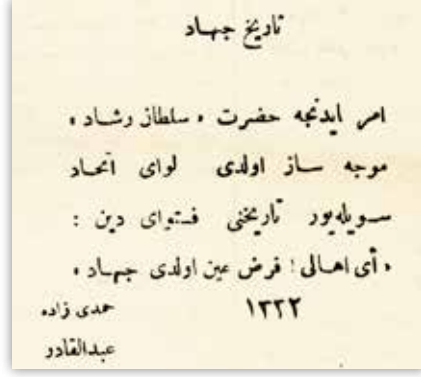 تاریخ جهـاد
امر ایدنجه حضرت « سلطان رشـاد »
موجه ســاز اولدی لوای اتحـاد
ســویلهیور تاریخنی فـتوای دین :
« أی اهـالی ! فرض عین اولدی جهـاد »
١٣٣٢
حمدی زاده
عبدالقادر